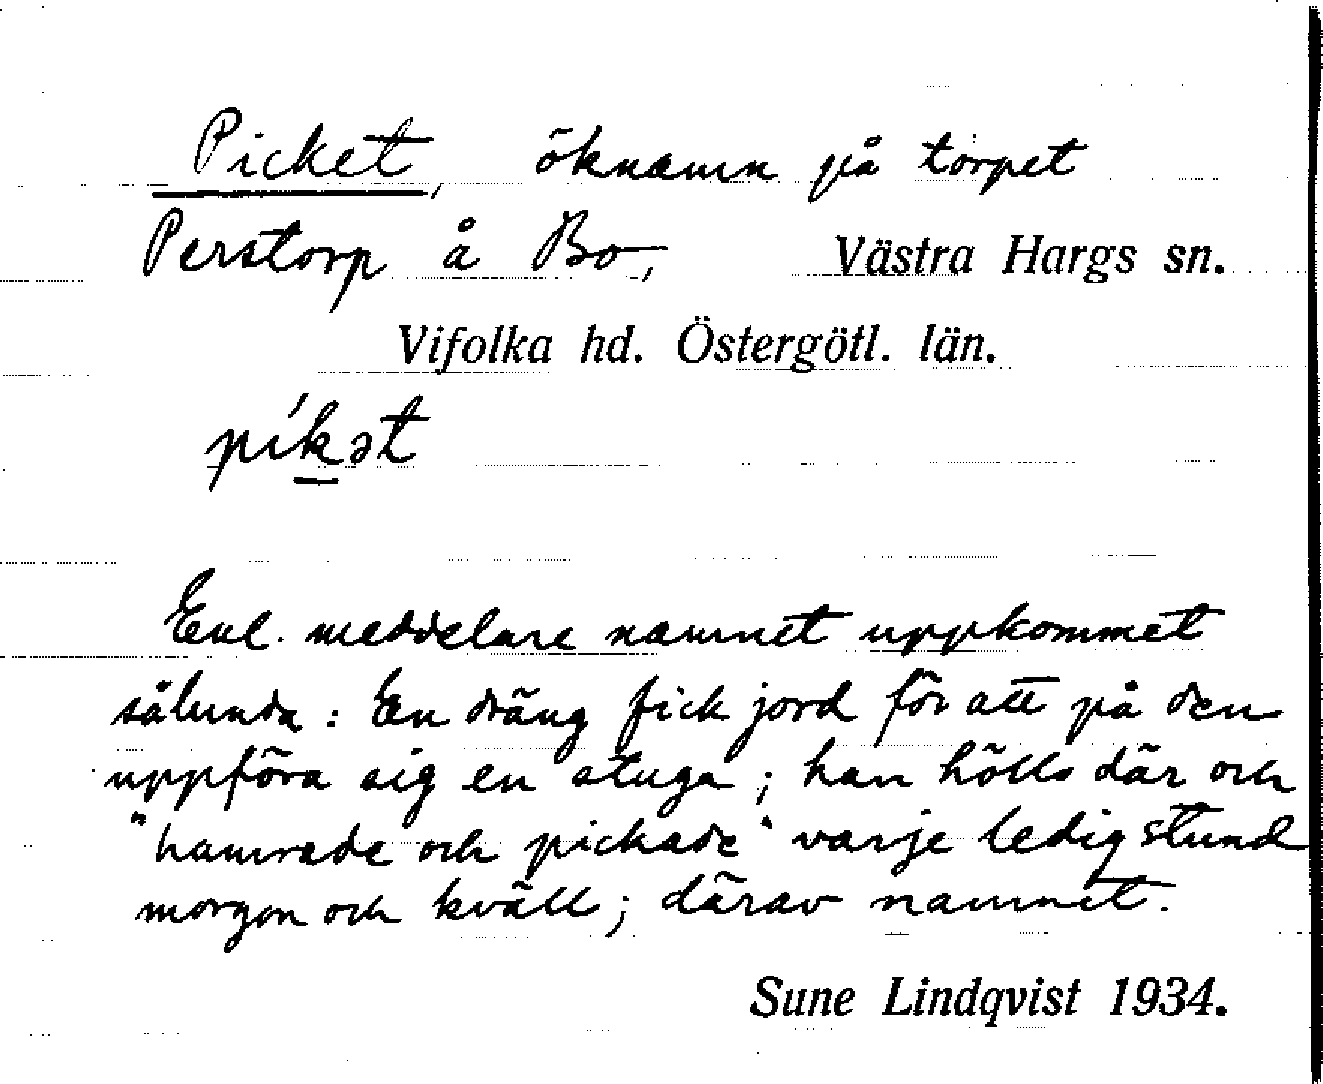 Picket, öknamn på torpet
Perstorp å Bo, Västra Hargs sn.
Vifolka hd. Östergötl. län.
píkət
Enl. meddelare namnet uppkommet
sålunda: En dräng fick jord för att på den
uppföra sig en stuga; han hölls där och
"hamrade och pickade" varje ledig stund
morgon och kväll; därav namnet.
Sune Lindqvist 1934.